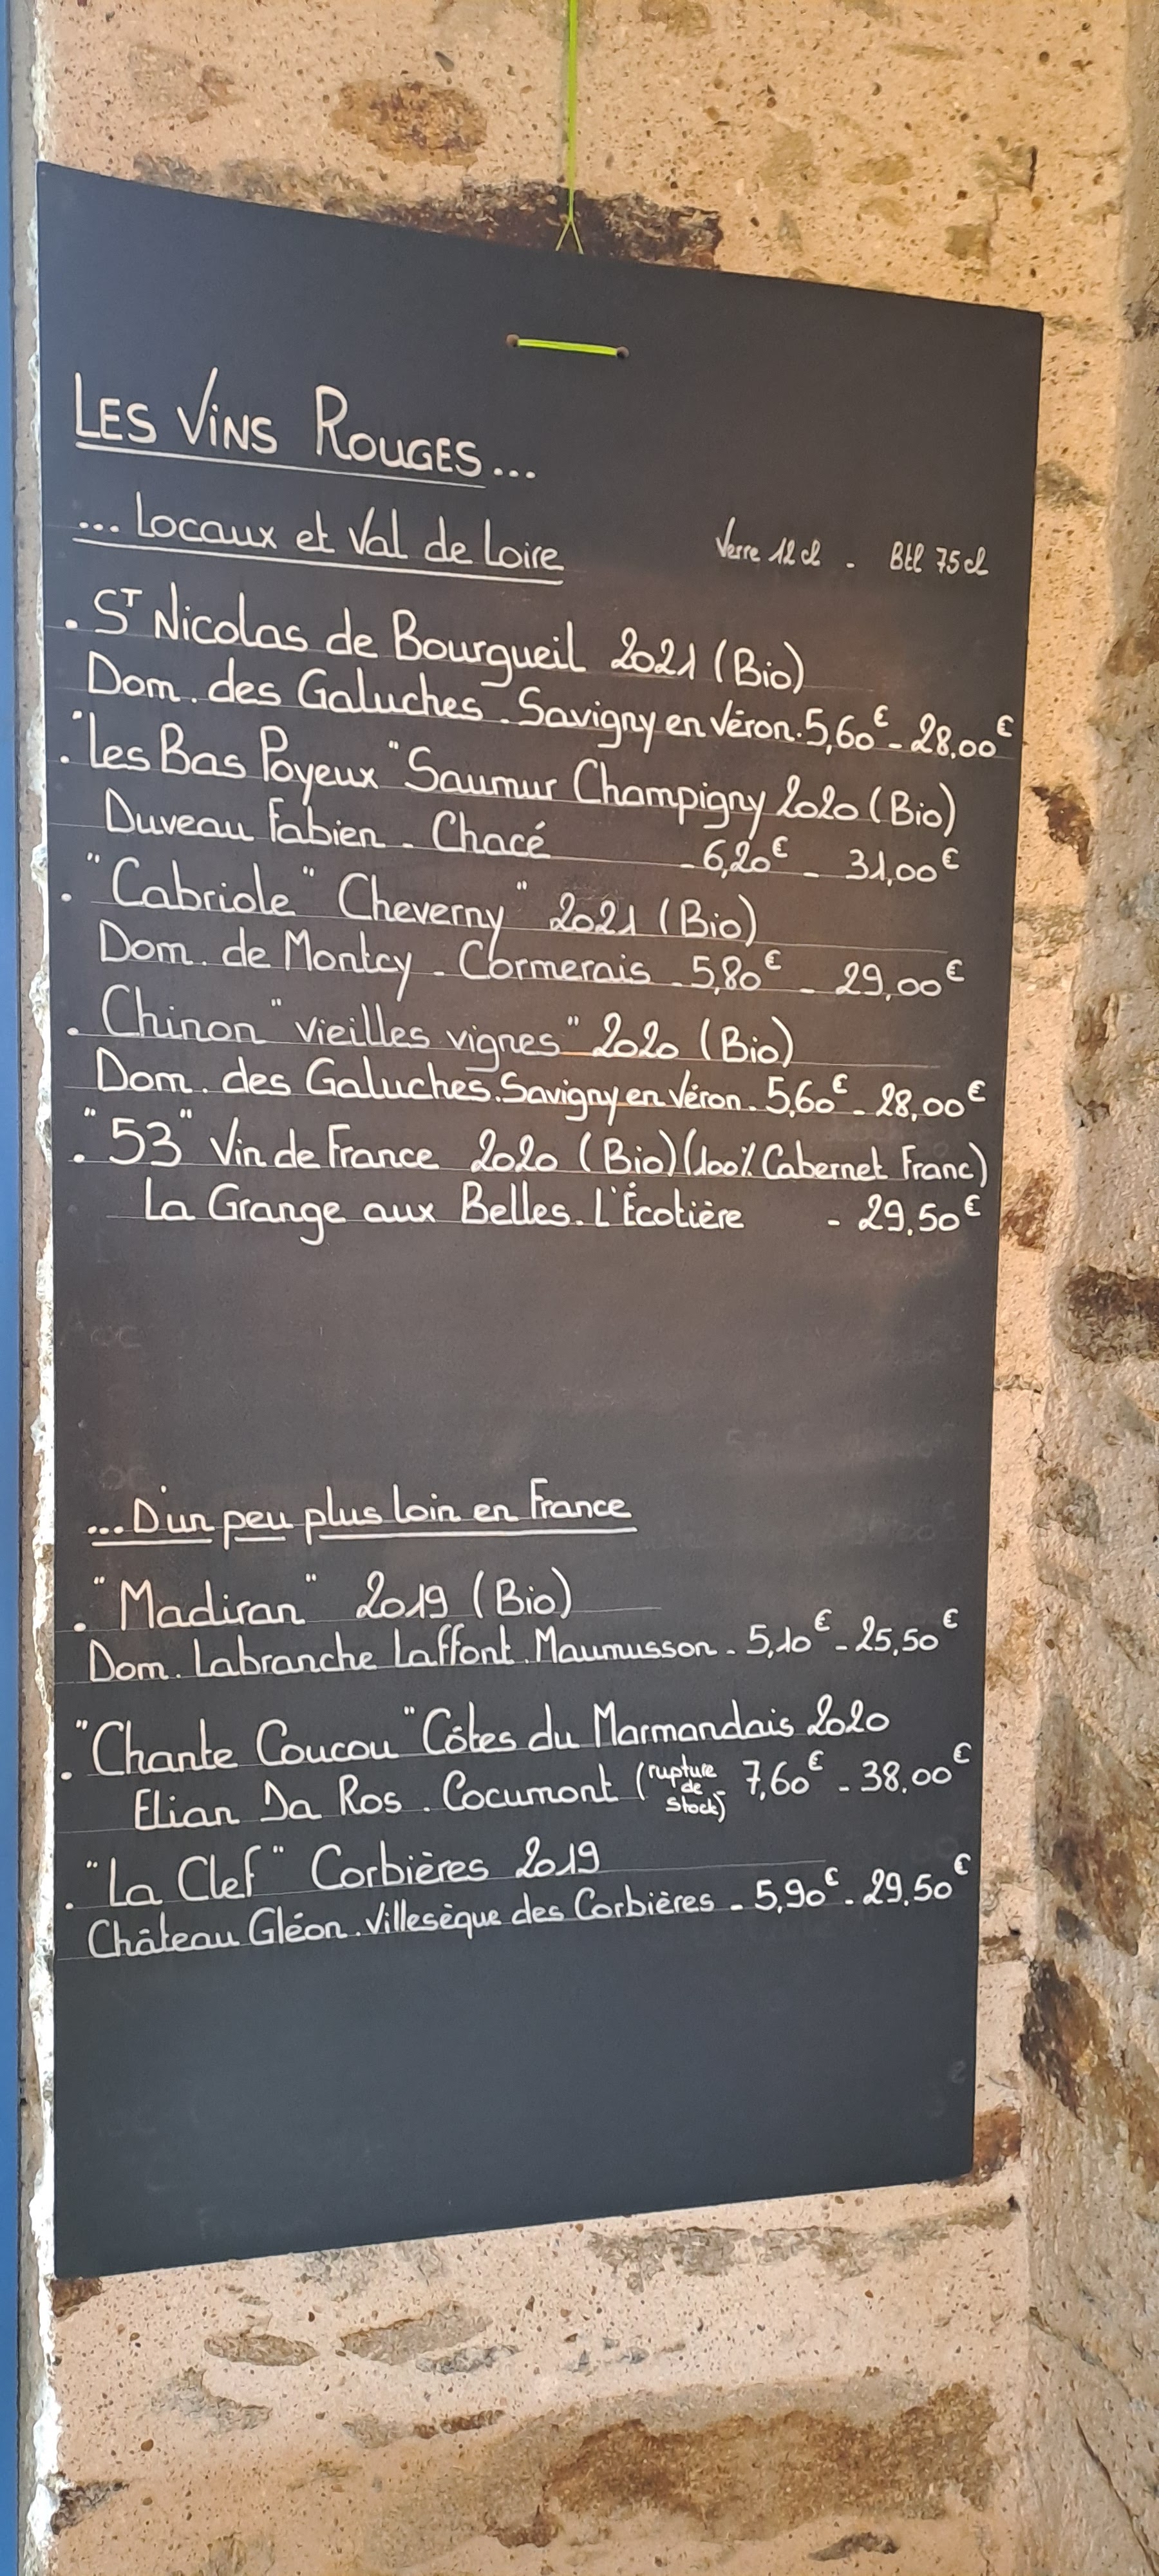 LES VINS ROUGES...
... Locaux et Val de Loire Verre 12 cl - Btl 75 cl
. ST Nicolas de Bourgueil 2021 (Bio)
Dom. des Galuches. Savigny en Véron. 5,60€ - 28,00€
. "Les Bas Poyeux" Saumur Champigny 2020 (Bio)
Duveau Fabien - Chacé - 6,20€ - 31,00€
. "Cabriole" Cheverny" 2021 (Bio)
Dom. de Montcy - Cormerais - 5,80€ - 29,00€
. Chinon "vieilles vignes" 2020 (Bio)
Dom. des Galuches. Savigny en Véron. 5,60€ - 28,00€
. "53" Vin de France 2020 (Bio) (100% Cabernet Franc)
La Grange aux Belles. L'Écotière - 29.50€
... D'un peu plus loin en France
. "Madiran" 2019 (Bio)
Dom. Labranche Laffont. Maumusson - 5,10€ - 25,50€
. "Chante Coucou" Côtes du Marmandais 2020
Elian Da Ros. Cocumont (rupture de stock) 7,60€ - 38.00€
. "La Clef" Corbières 2019
Château Gléon. Villesèque des Corbières - 5,90€ - 29.50€